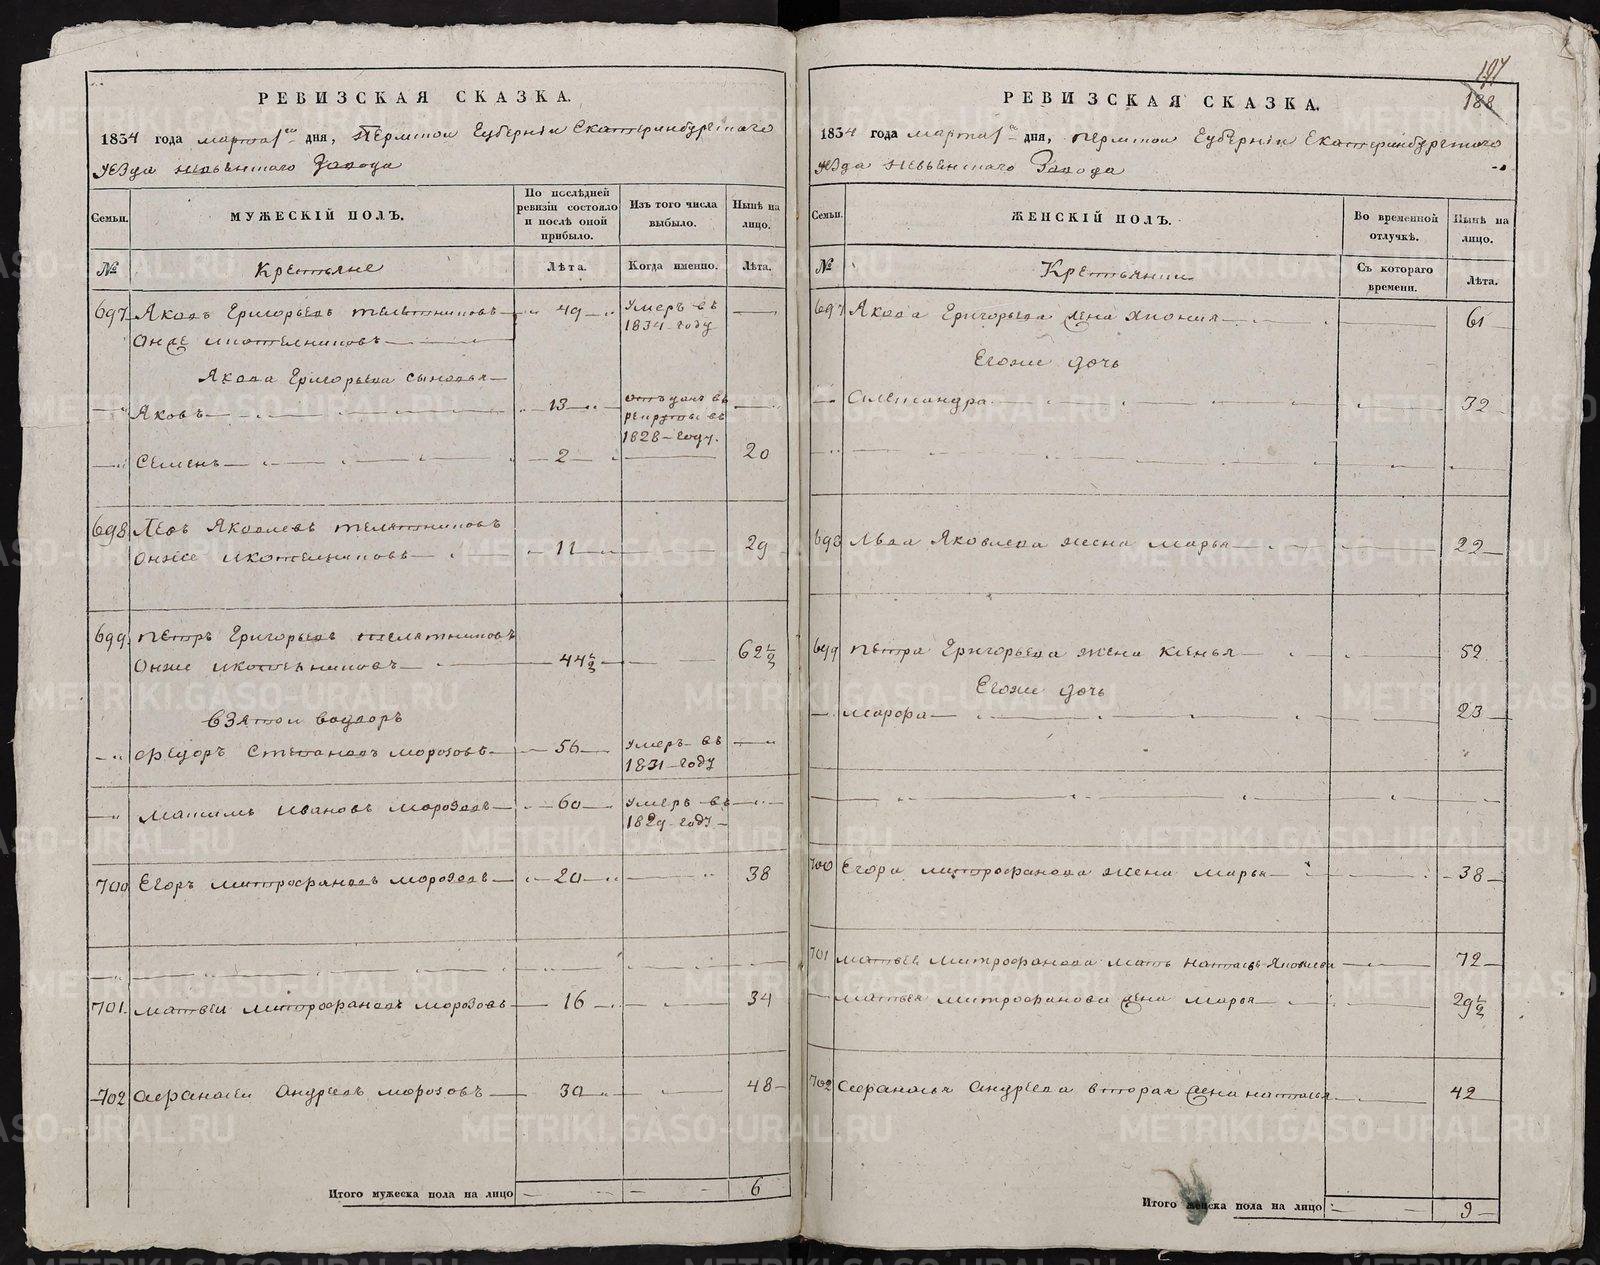 РЕВИЗСКАЯ СКАЗКА.
1834 года марта 1го дня, Пермской Губернии Екатеринбургского
уезда Невьянского Завода
Семьи.
МУЖЕСКІЙ ПОЛЪ.
По послѣдней ревизіи состояло и послѣ оной прибыло.
Изъ того числа выбыло.
Нынѣ на лицо.
№
Крестьяне
Лѣта.
Когда именно.
Лѣта.
697 Яковъ Григорьевъ Телятниковъ 49 Умеръ въ 1834 году
Онже
Якова Григорьева сыновья
Яковъ 13 отъданъ въ рекруты въ 1828 году.
Семенъ 2 20
698 Левъ Яковлевъ Телятниковъ
Онже 11 29
699 Петръ Григорьевъ Телятниковъ
Онже 44 1/2 62 1/2
Федоръ Степановъ Морозовъ 56 Умеръ въ 1831 году
Иванов Морозовъ 60 Умеръ въ 1829 году
700 Егоръ Митрофановъ Морозовъ 20 38
701. Матвей Митрофановъ Морозовъ 16 34
702 Афанасей Андреевъ Морозовъ 30 48
Итого мужеска пола на лицо 6
197
188
РЕВИЗСКАЯ СКАЗКА.
1834 года марта 1 дня, Пермской Губернии Екатеринбургского
уезда Невьянского Завода
Семьи.
ЖЕНСКІЙ ПОЛЪ.
Во временной отлучкѣ.
Нынѣ на лицо.
№
Крестьянки
Съ котораго времени.
Лѣта.
697 Якова Григорьева жена 61
Егоже дочь
32
698 Льва Яковлева жена Марья 22
699 Петра Григорьева жена 52
Егоже дочь
23
700 Егора Митрофанова жена Марья 38
701 Матвея Митрофанова мать Яковлева 72
Матвея Митрофанова жена Марья 29 1/2
702 Афанасья Андреева вторая жена Наталья 42
Итого женска пола на лицо 9
METRIKI.GASO-URAL.RU